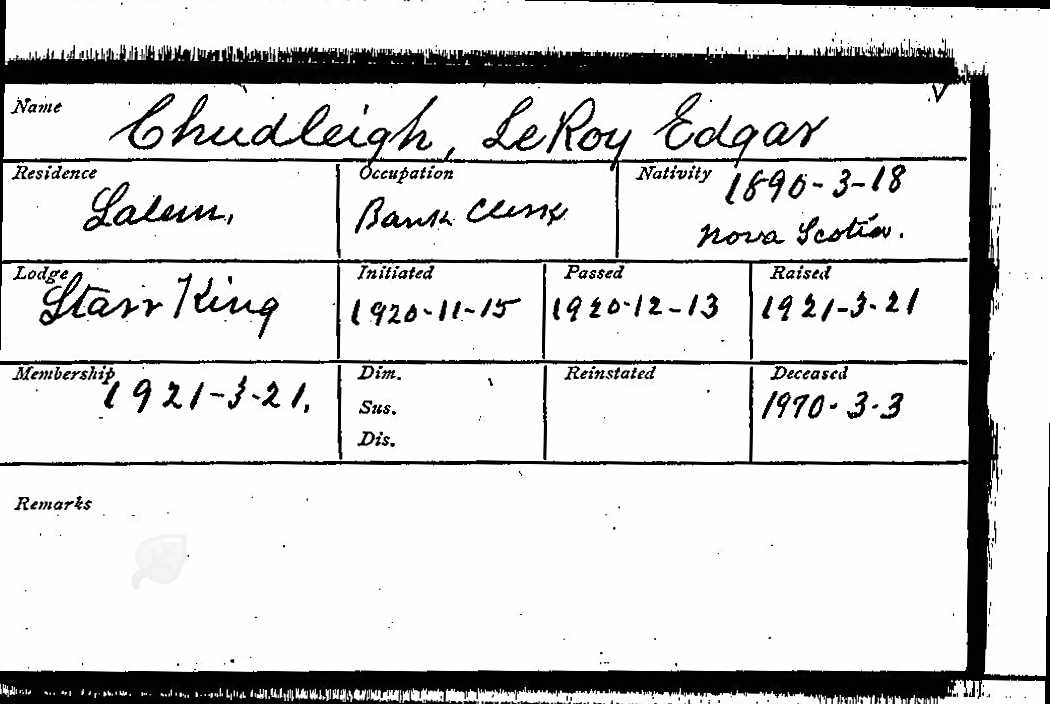 Name
Chudleigh, LeRoy Edgar
Residence
Salem,
Occupation
Bank Clerk
Nativity
1890-3-18
Nova Scotia.
Lodge
Starr King
Initiated
1920-11-15
Passed
1920-12-13
Raised
1921-3-21
Membership
1921-3-21,
Dim.
Sus.
Dis.
Reinstated
Deceased
1970-3-3
Remarks